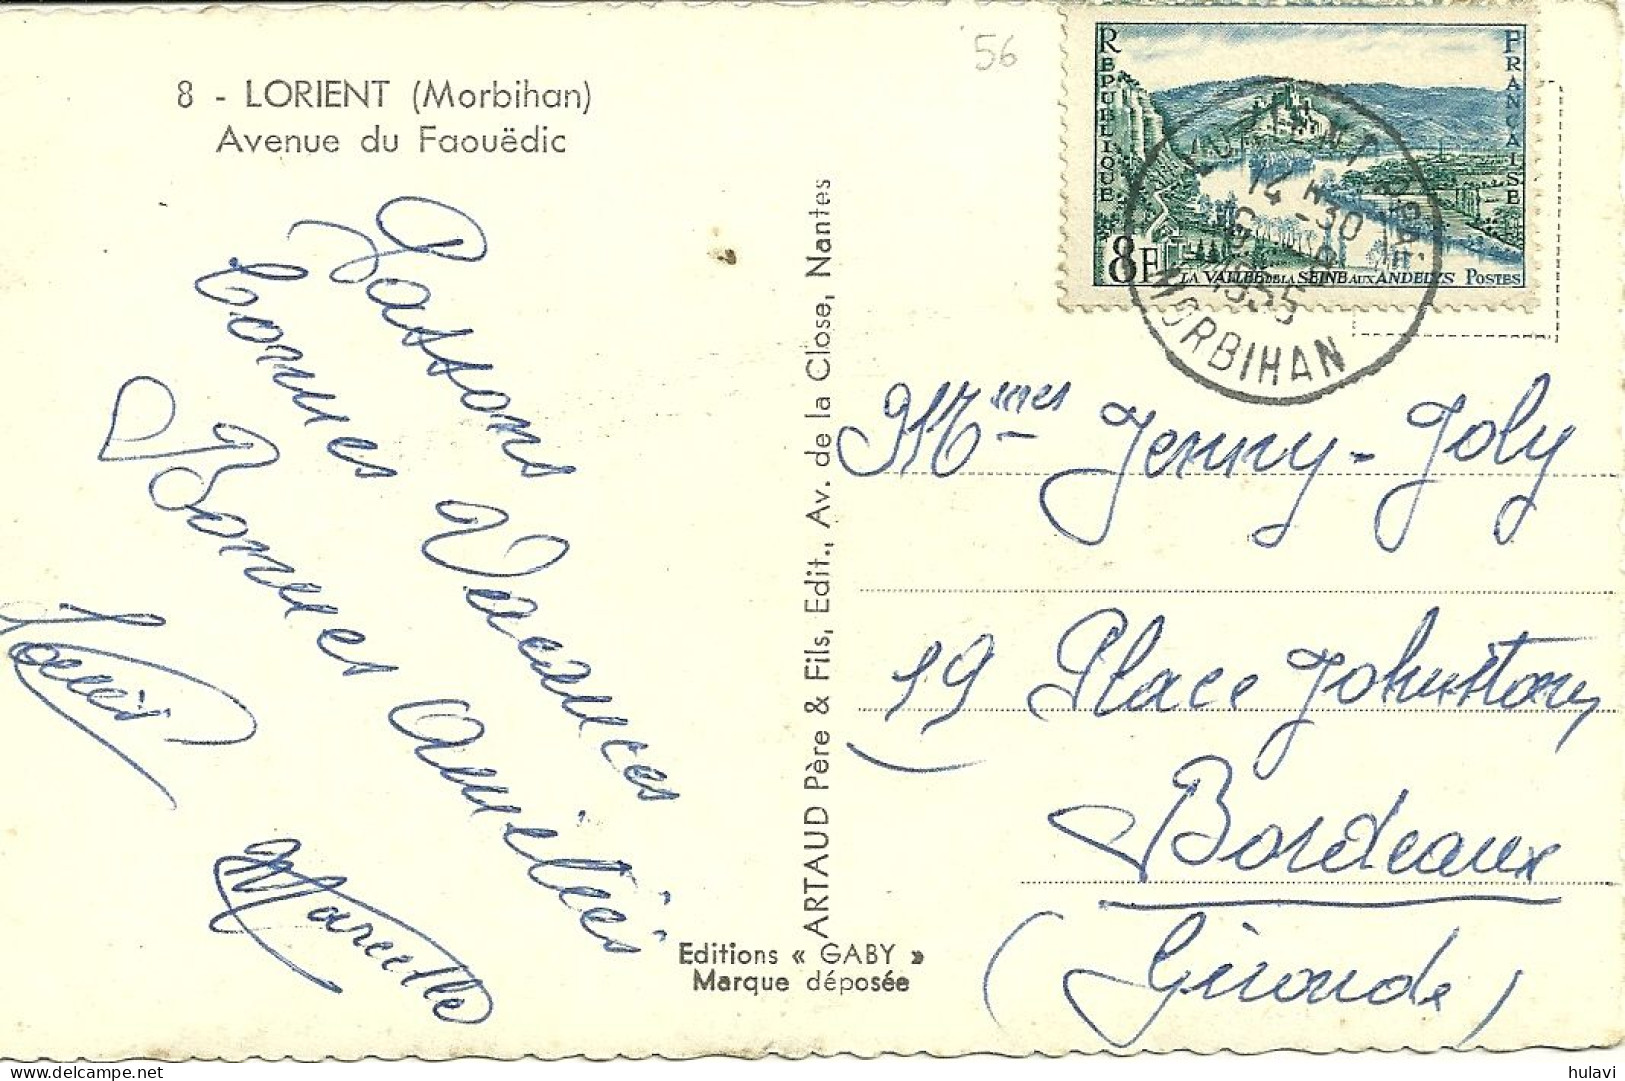 56
8 - LORIENT (Morbihan)
Avenue du Faouëdic
RÉPUBLIQUE FRANÇAISE
8F LA VALLÉE DE LA SEINE AUX ANDELYS POSTES
LORIENT
14 H - 30
1955
MORBIHAN
Passons
bonnes Vacances
Bonnes Amitiés
Marcelle
ARTAUD Père & Fils, Edit., Av. de la Close, Nantes
Editions « GABY »
Marque déposée
Mmes Jenny-Joly
19 Place Johnston
Bordeaux
(Gironde)
hulavi